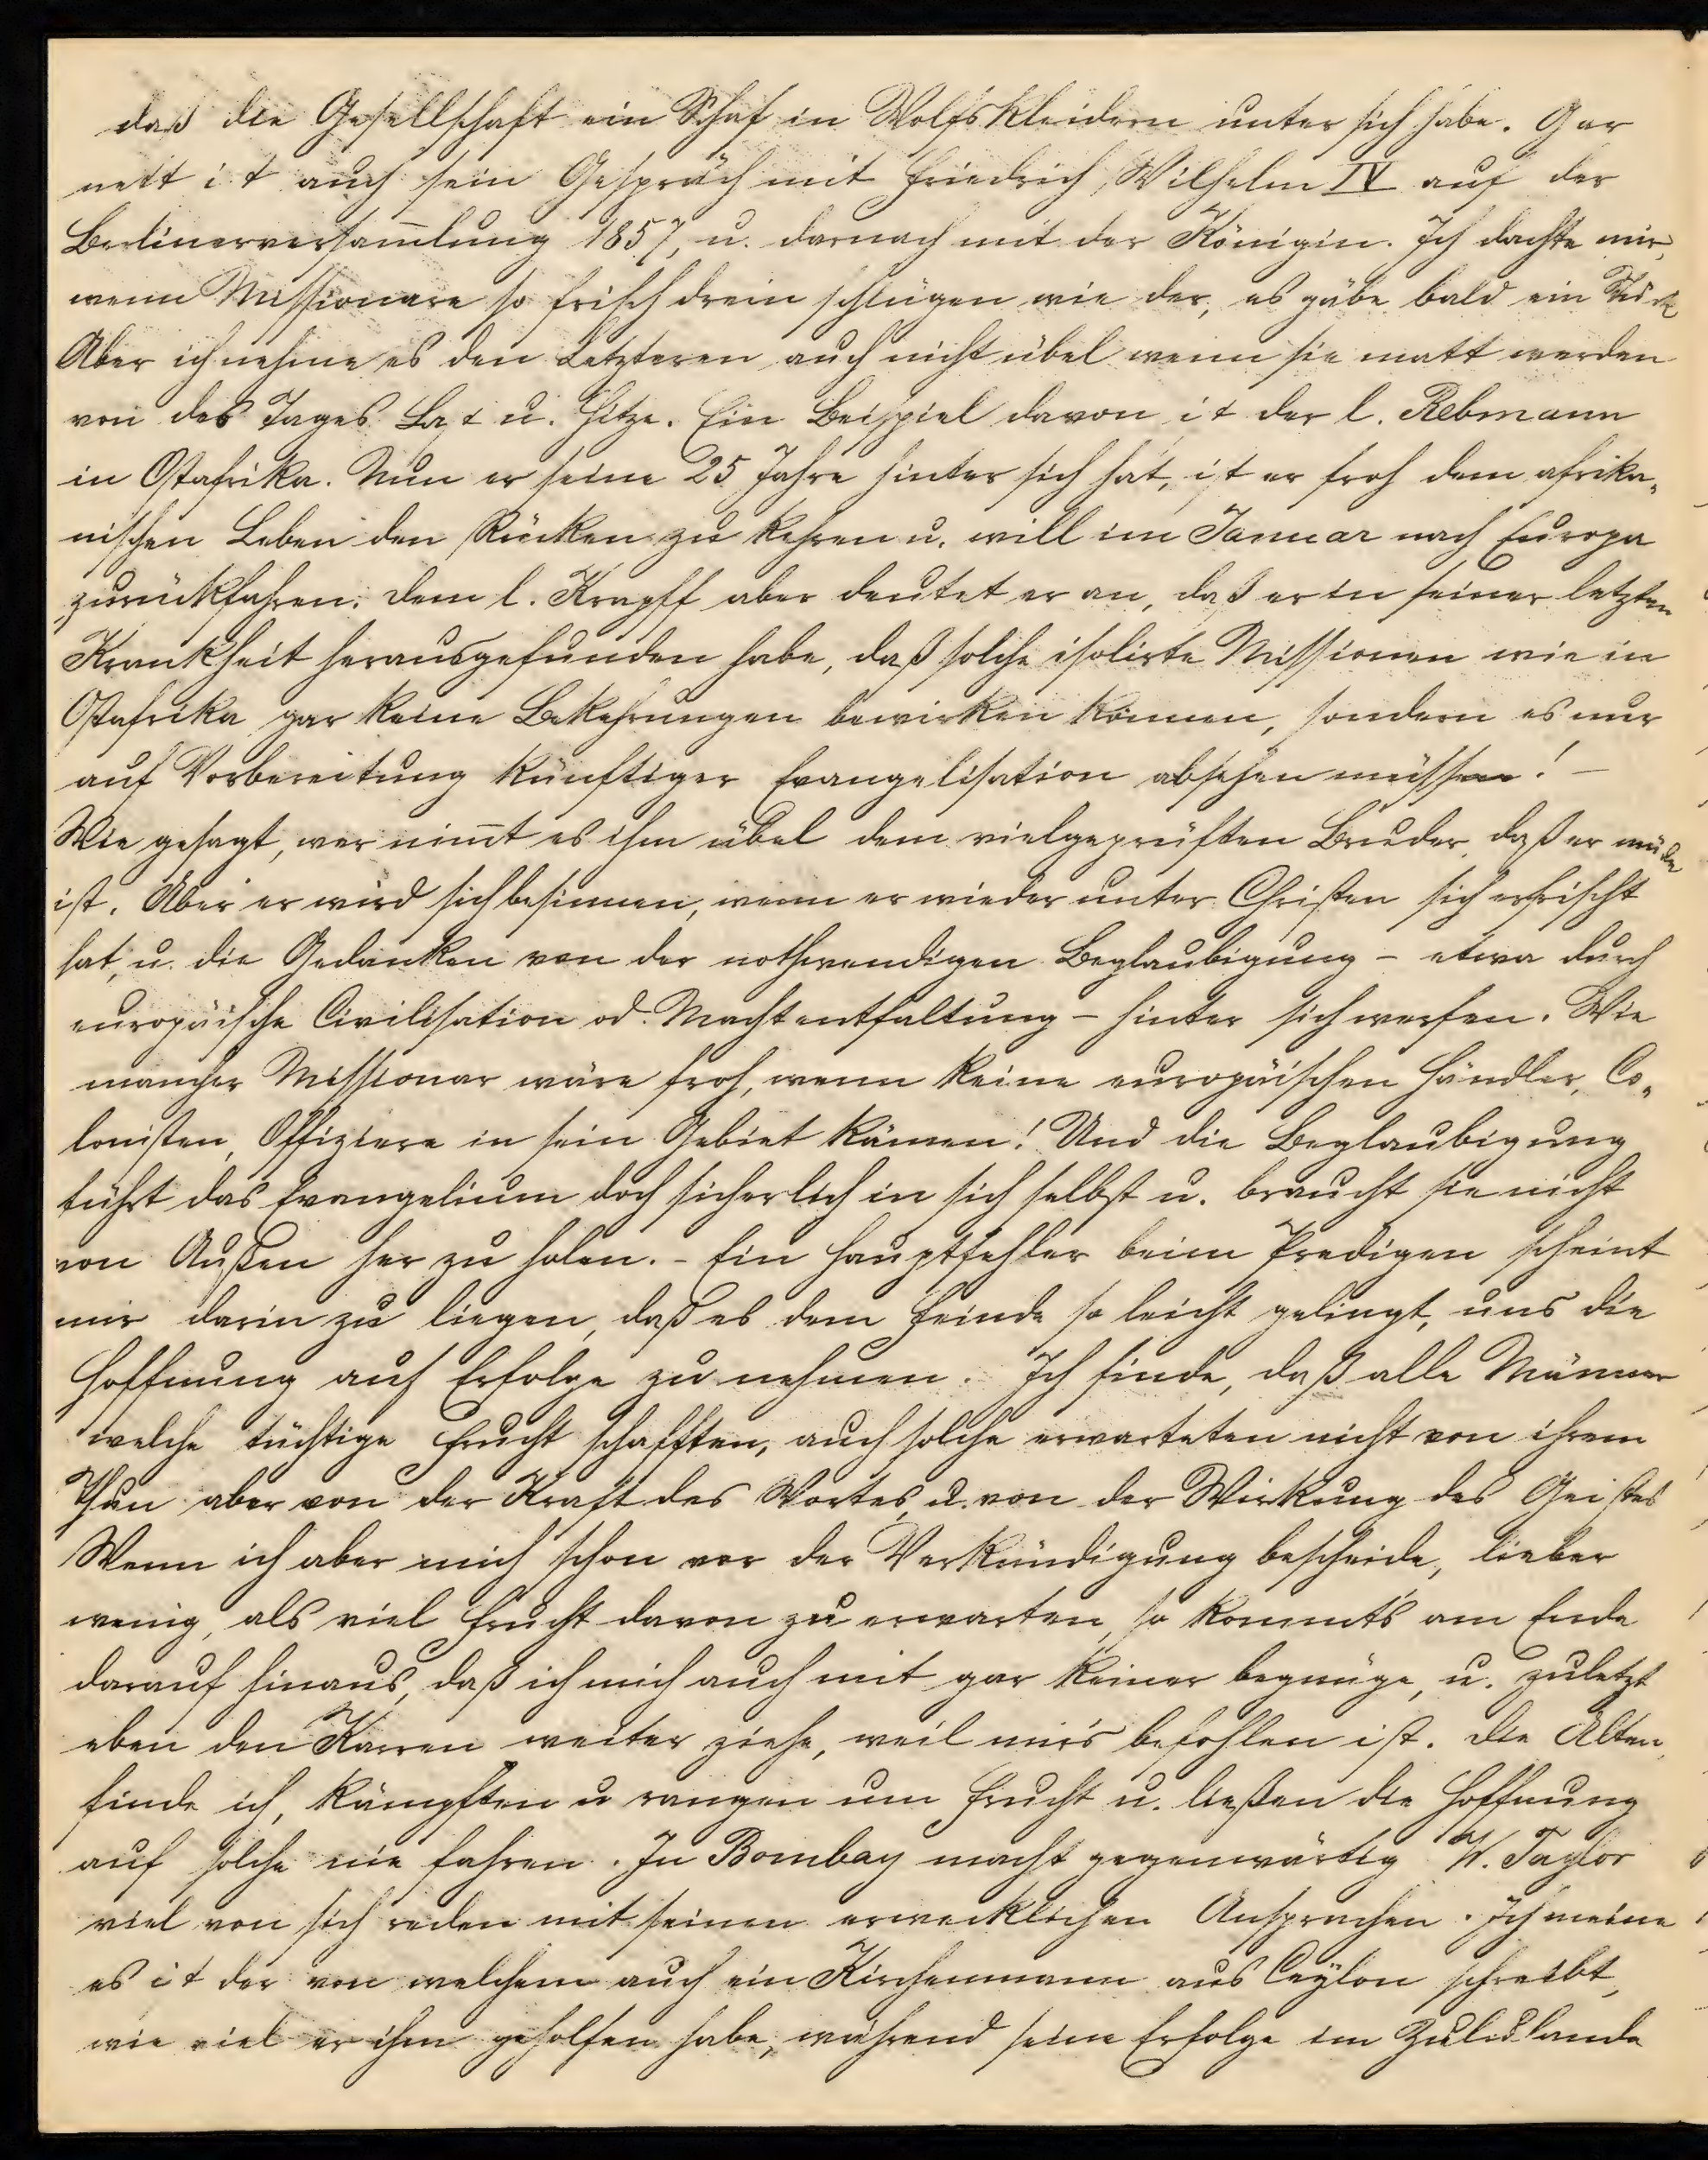 daß die Gesellschaft ein Schaf in Wolfskleidern unter sich habe. Gar
nett ist auch sein Gespräch mit Friedrich Wilhelm IV auf der
Berlinerversam̅lung 1857, u. darnach mit der Königin. Ich dachte mir,
wenn Missionare so frisch drein schlügen wie der, es gäbe bald ein
Aber ich nehme es den Letzteren auch nicht übel wenn sie matt werden
von des Tages Last u. Hitze. Ein Beispiel davon ist der l. Rebmann
in Ostafrika. Nun er seine 25 Jahre hinter sich hat, ist er froh dem afrika„
nischen Leben den Rücken zu kehren u. will im Januar nach Europa
zurückfahren. Dem l. Krapff aber deutet er an, daß er in seiner letzten
Krankheit herausgefunden habe, daß solche isolirte Missionen wie in
Ostafrika gar keine Bekehrungen bewirken können, sondern es nur
auf Vorbereitung künftiger Evangelisation absehen müssen! –
Wie gesagt, wer nim̅t es ihm übel dem vielgeprüften Bruder, daß er müde
ist. Aber er wird sich besinnen, wenn er wieder unter Christen sich erfrischt
hat, u. die Gedanken von der nothwendigen Beglaubigung – etwa durch
europäische Civilisation od. Machtentfaltung – hinter sich werfen. Wie
mancher Missionar wäre froh, wenn keine europäischen Händler, Co„
lonisten, Offiziere in sein Gebiet kämen! Und die Beglaubigung
führt das Evangelium doch sicherlich in sich selbst u. braucht sie nicht
von Außen her zu holen. – Ein Hauptfehler beim Predigen scheint
mir darin zu liegen, daß es dem Feinde so leicht gelingt, uns die
Hoffnung auf Erfolge zu nehmen. Ich finde, daß alle Männer
welche tüchtige Frucht schafften, auch solche erwarteten nicht von ihrem
Thun aber von der Kraft des Wortes u. von der Wirkung des Geistes
Wenn ich aber mich schon vor der Verkündigung bescheide, lieber
wenig, als viel Frucht davon zu erwarten, so kommt's am Ende
darauf hinaus, daß ich mich auch mit gar keiner begnüge, u. zuletzt
eben den Karren weiter ziehe, weil mir's befohlen ist. Die Alten,
finde ich, kämpften u rangen um Frucht u. ließen die Hoffnung
auf solche nie fahren. In Bombay macht gegenwärtig W. Taylor
viel von sich reden mit seinen erwecklichen Ansprachen. Ich meine
es ist der von welchem auch ein Kirchenmann aus Ceylon schreibt,
wie viel er ihm geholfen habe, während seine Erfolge im Zululande